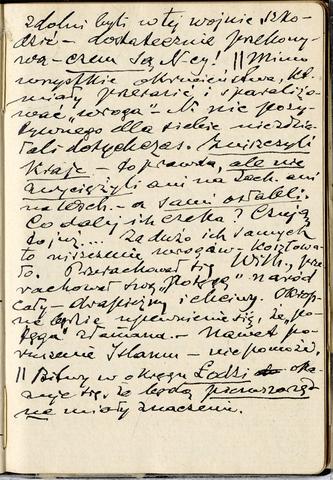 zdolni byli w tej wojnie szko-
dzić – dostatecznie przekony-
wa – czem są N-cy! || Mimo
wszystkie okrucieństwa, kt.
miały przerazić i sparaliżo-
wać „wroga” – N. nic pozy-
tywnego dla siebie nie zdzia-
łali dotychczas. Zniszczyli
kraje – to prawda, ale nie
zwyciężyli ani na Zach. ani
na Wsch. – a sami osłabli.
Co dalej ich czeka? Czują
to już... Za dużo ich samych
to niszczenie wrogów – kosztowa-
ło. Przerachował się Wilh., prze-
rachował swą „Potęgę” naród
cały – drapieżny i chciwy. Okrop-
ne będzie upewnienie się, że „po-
tęga” złamana. – Nawet po-
ruszenie Islamu – nie pomoże.
|| Bitwy w okręgu Łodzi oka-
że się, że będą pierwszorzęd-
ne miały znaczenie.